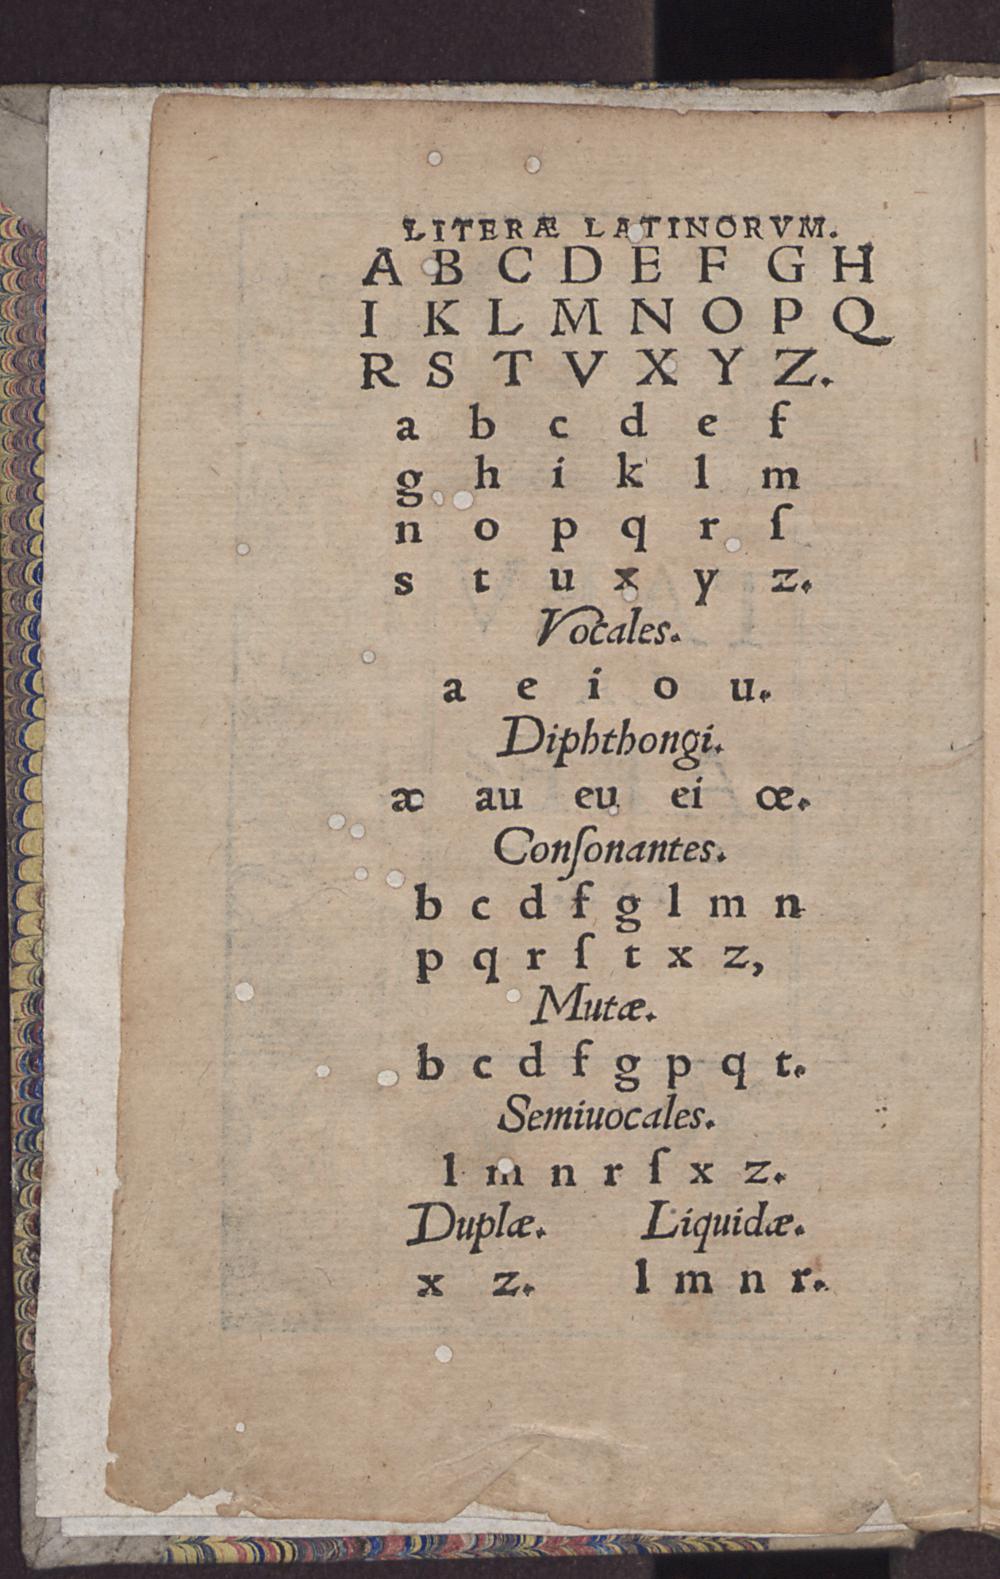 LITERÆ LATINORVM.
A B C D E F G H
I K L M N O P Q
R S T V X Y Z.
a b c d e f
g h i k l m
n o p q r ſ
s t u x y z.
Vocales.
a e i o u.
Diphthongi.
æ au eu ei œ.
Conſonantes.
b c d f g l m n
p q r ſ t x z,
Mutæ.
b c d f g p q t.
Semiuocales.
l m n r ſ x z.
Duplæ. Liquidæ.
x z. l m n r.